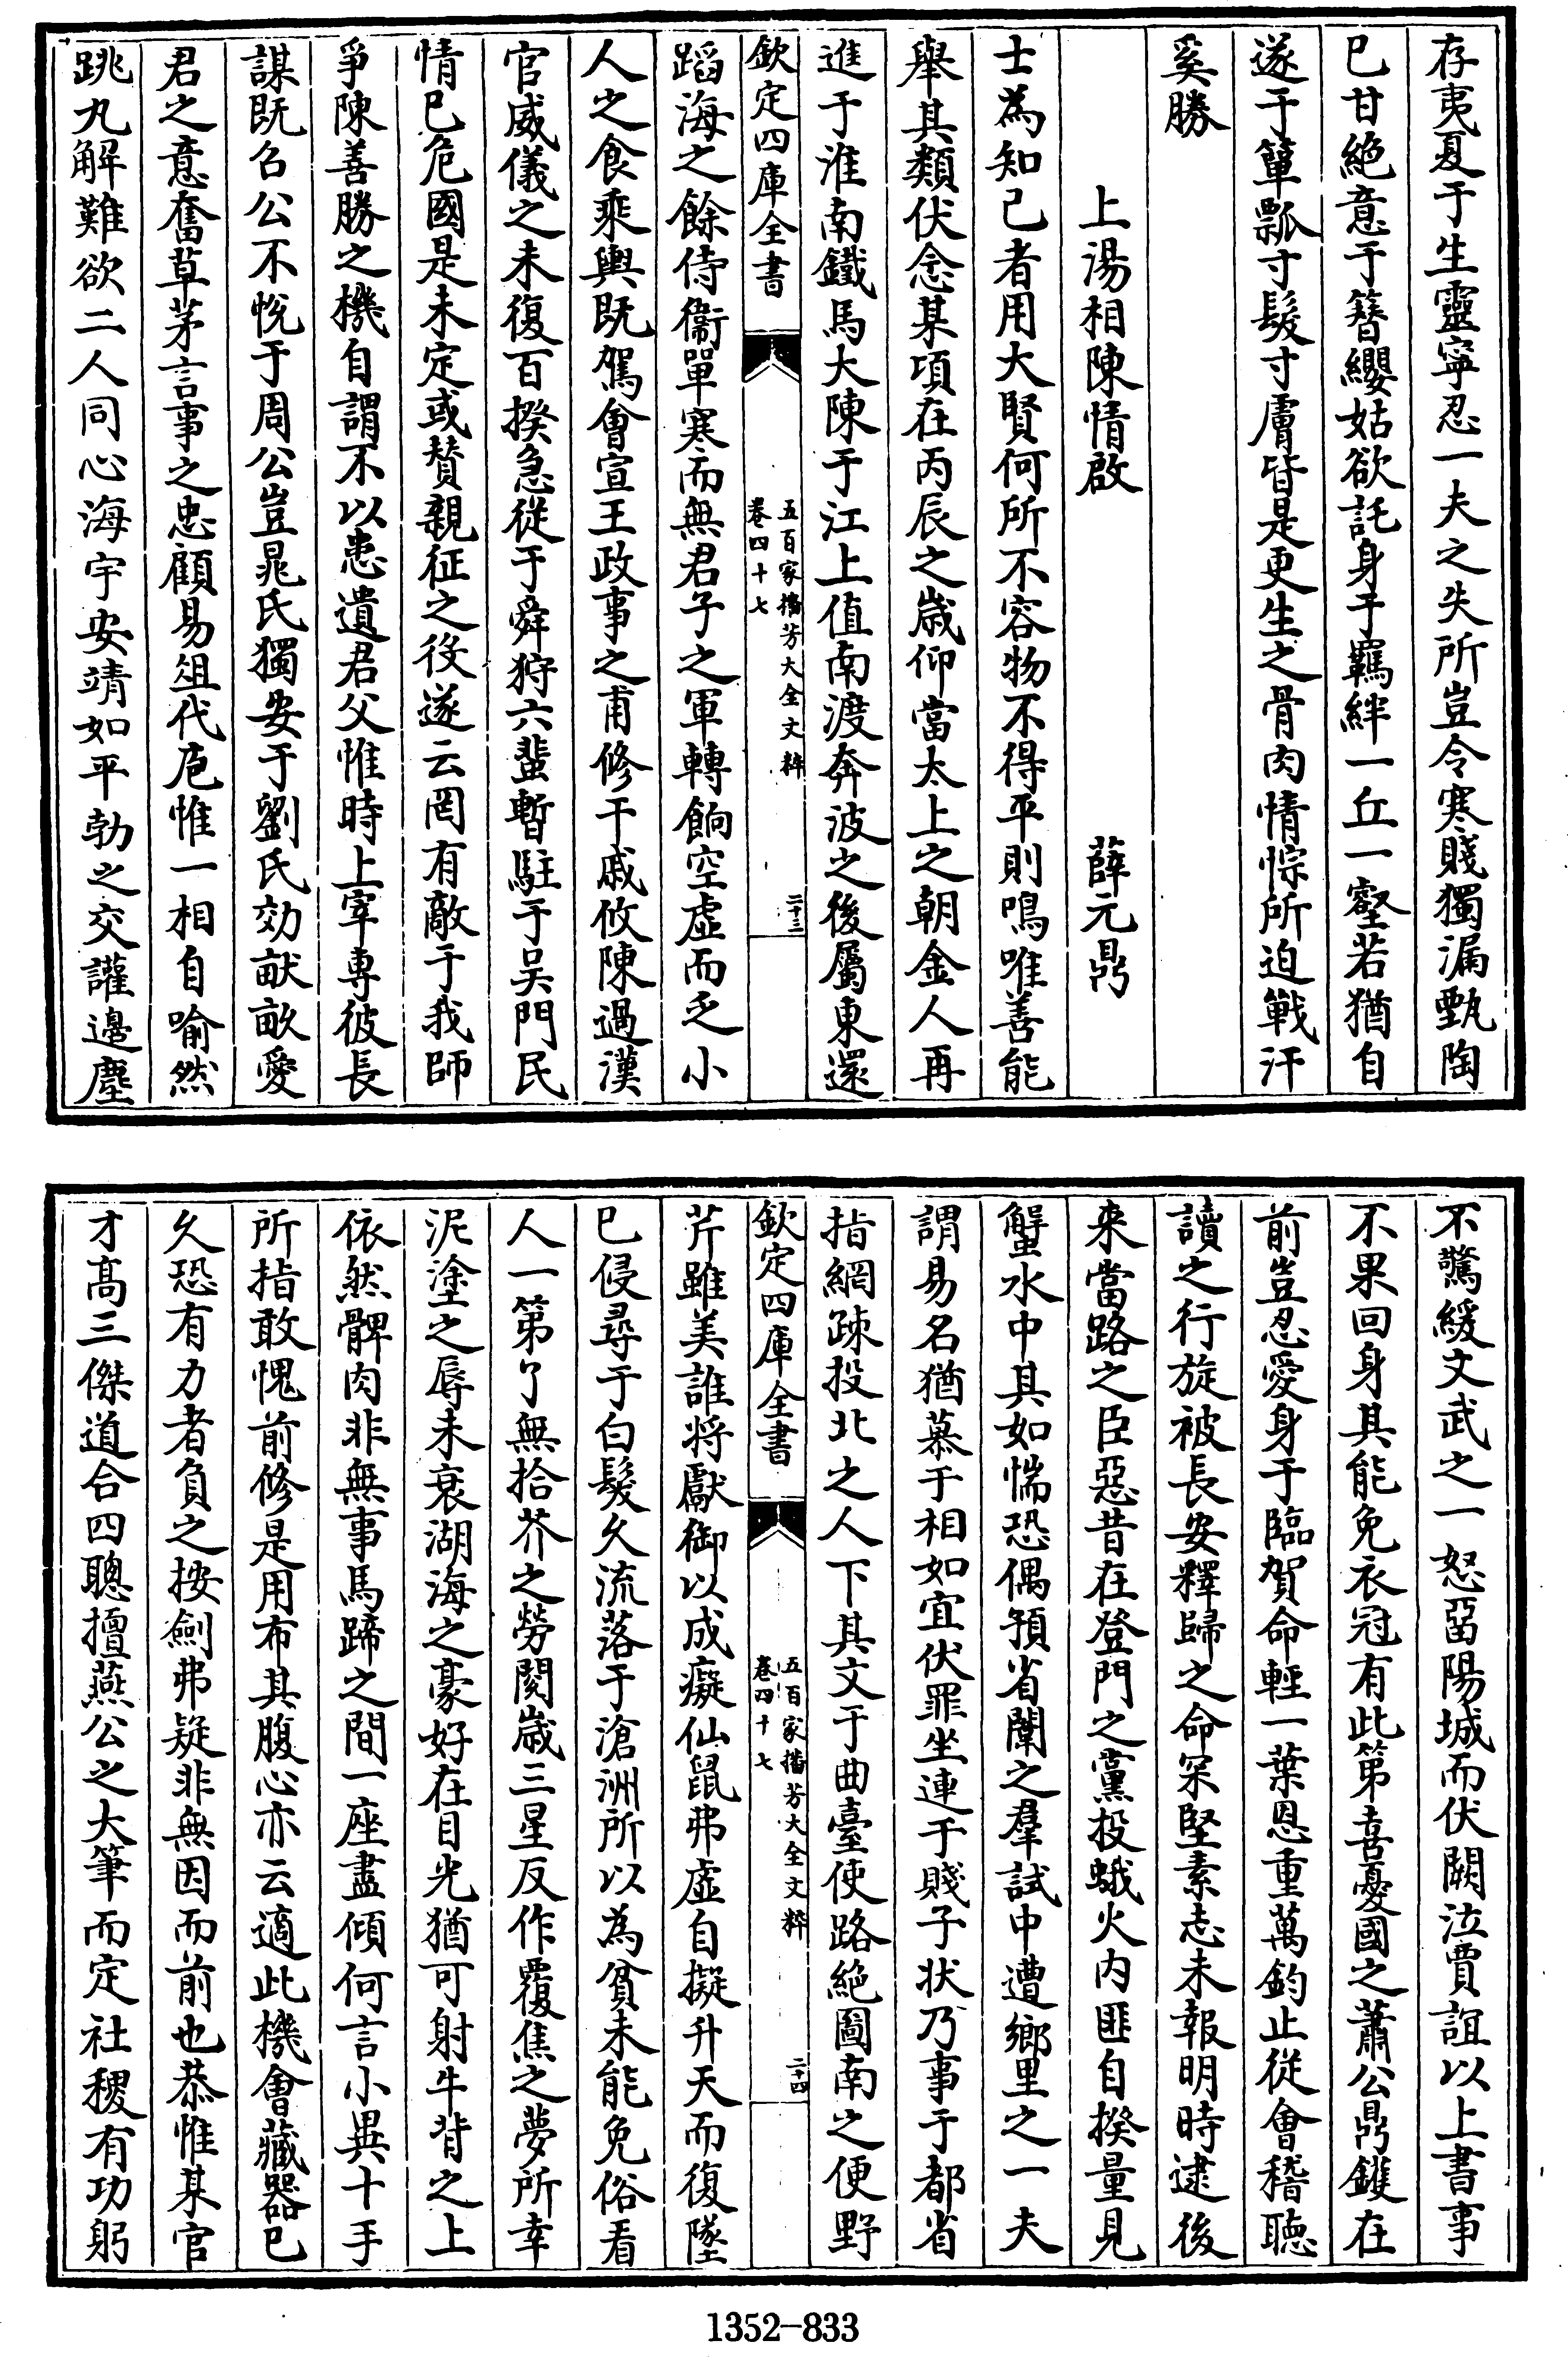 存夷夏于生靈寧忍一夫之失所豈令寒賤獨漏甄陶
已甘絶意于簪纓姑欲託身于羈絆一丘一壑若猶自
遂于簞瓢寸髮寸膚皆是更生之骨肉情悰所迫戰汗
奚勝
上湯相陳情啟 薛元鼎
士為知己者用大賢何所不容物不得平則鳴唯善能
舉其類伏念某頃在丙辰之歲仰當太上之朝金人再
進于淮南鐵馬大陳于江上值南渡奔波之後屬東還
欽定四庫全書
五百家播芳大全文粹
卷四十七
二十三
蹈海之餘侍衞單寒而無君子之軍轉餉空虛而乏小
人之食乘輿既駕會宣王政事之甫修干戚攸陳過漢
官威儀之未復百揆急從于舜狩六蜚暫駐于吳門民
情已危國是未定或贊親征之役遂云罔有敵于我師
爭陳善勝之機自謂不以患遺君父惟時上宰專彼長
謀既召公不悅于周公豈晁氏獨安于劉氏効畎畝愛
君之意奮草茅言事之忠顧易俎代庖惟一相自喻然
跳丸解難欲二人同心海宇安靖如平勃之交讙邊塵
不驚緩文武之一怒留陽城而伏闕泣賈誼以上書事
不果回身其能免衣冠有此第喜憂國之蕭公鼎鑊在
前豈忍愛身于臨賀命輕一葉恩重萬鈞止從會稽聴
讀之行旋被長安釋歸之命罙堅素志未報明時逮後
来當路之臣惡昔在登門之黨投蛾火内匪自揆量見
蟹水中其如惴恐偶預省闈之羣試中遭鄉里之一夫
謂易名猶慕于相如宜伏罪坐連于賤子狀乃事于都省
指網疎投北之人下其文于曲臺使路絶圖南之便野
欽定四庫全書
五百家播芳大全文粹
卷四十七
二十四
芹雖美誰将獻御以成癡仙鼠弗虛自擬升天而復墜
已侵尋于白髮久流落于滄洲所以為貧未能免俗看
人一第了無拾芥之勞閱歲三星反作覆焦之夢所幸
泥塗之辱未衰湖海之豪好在目光猶可射牛背之上
依然髀肉非無事馬蹄之間一座盡傾何言小異十手
所指敢愧前修是用布其腹心亦云適此機會藏器已
久恐有力者負之按劍弗疑非無因而前也恭惟某官
才高三傑道合四聰擅燕公之大筆而定社稷有功躬
1352-833